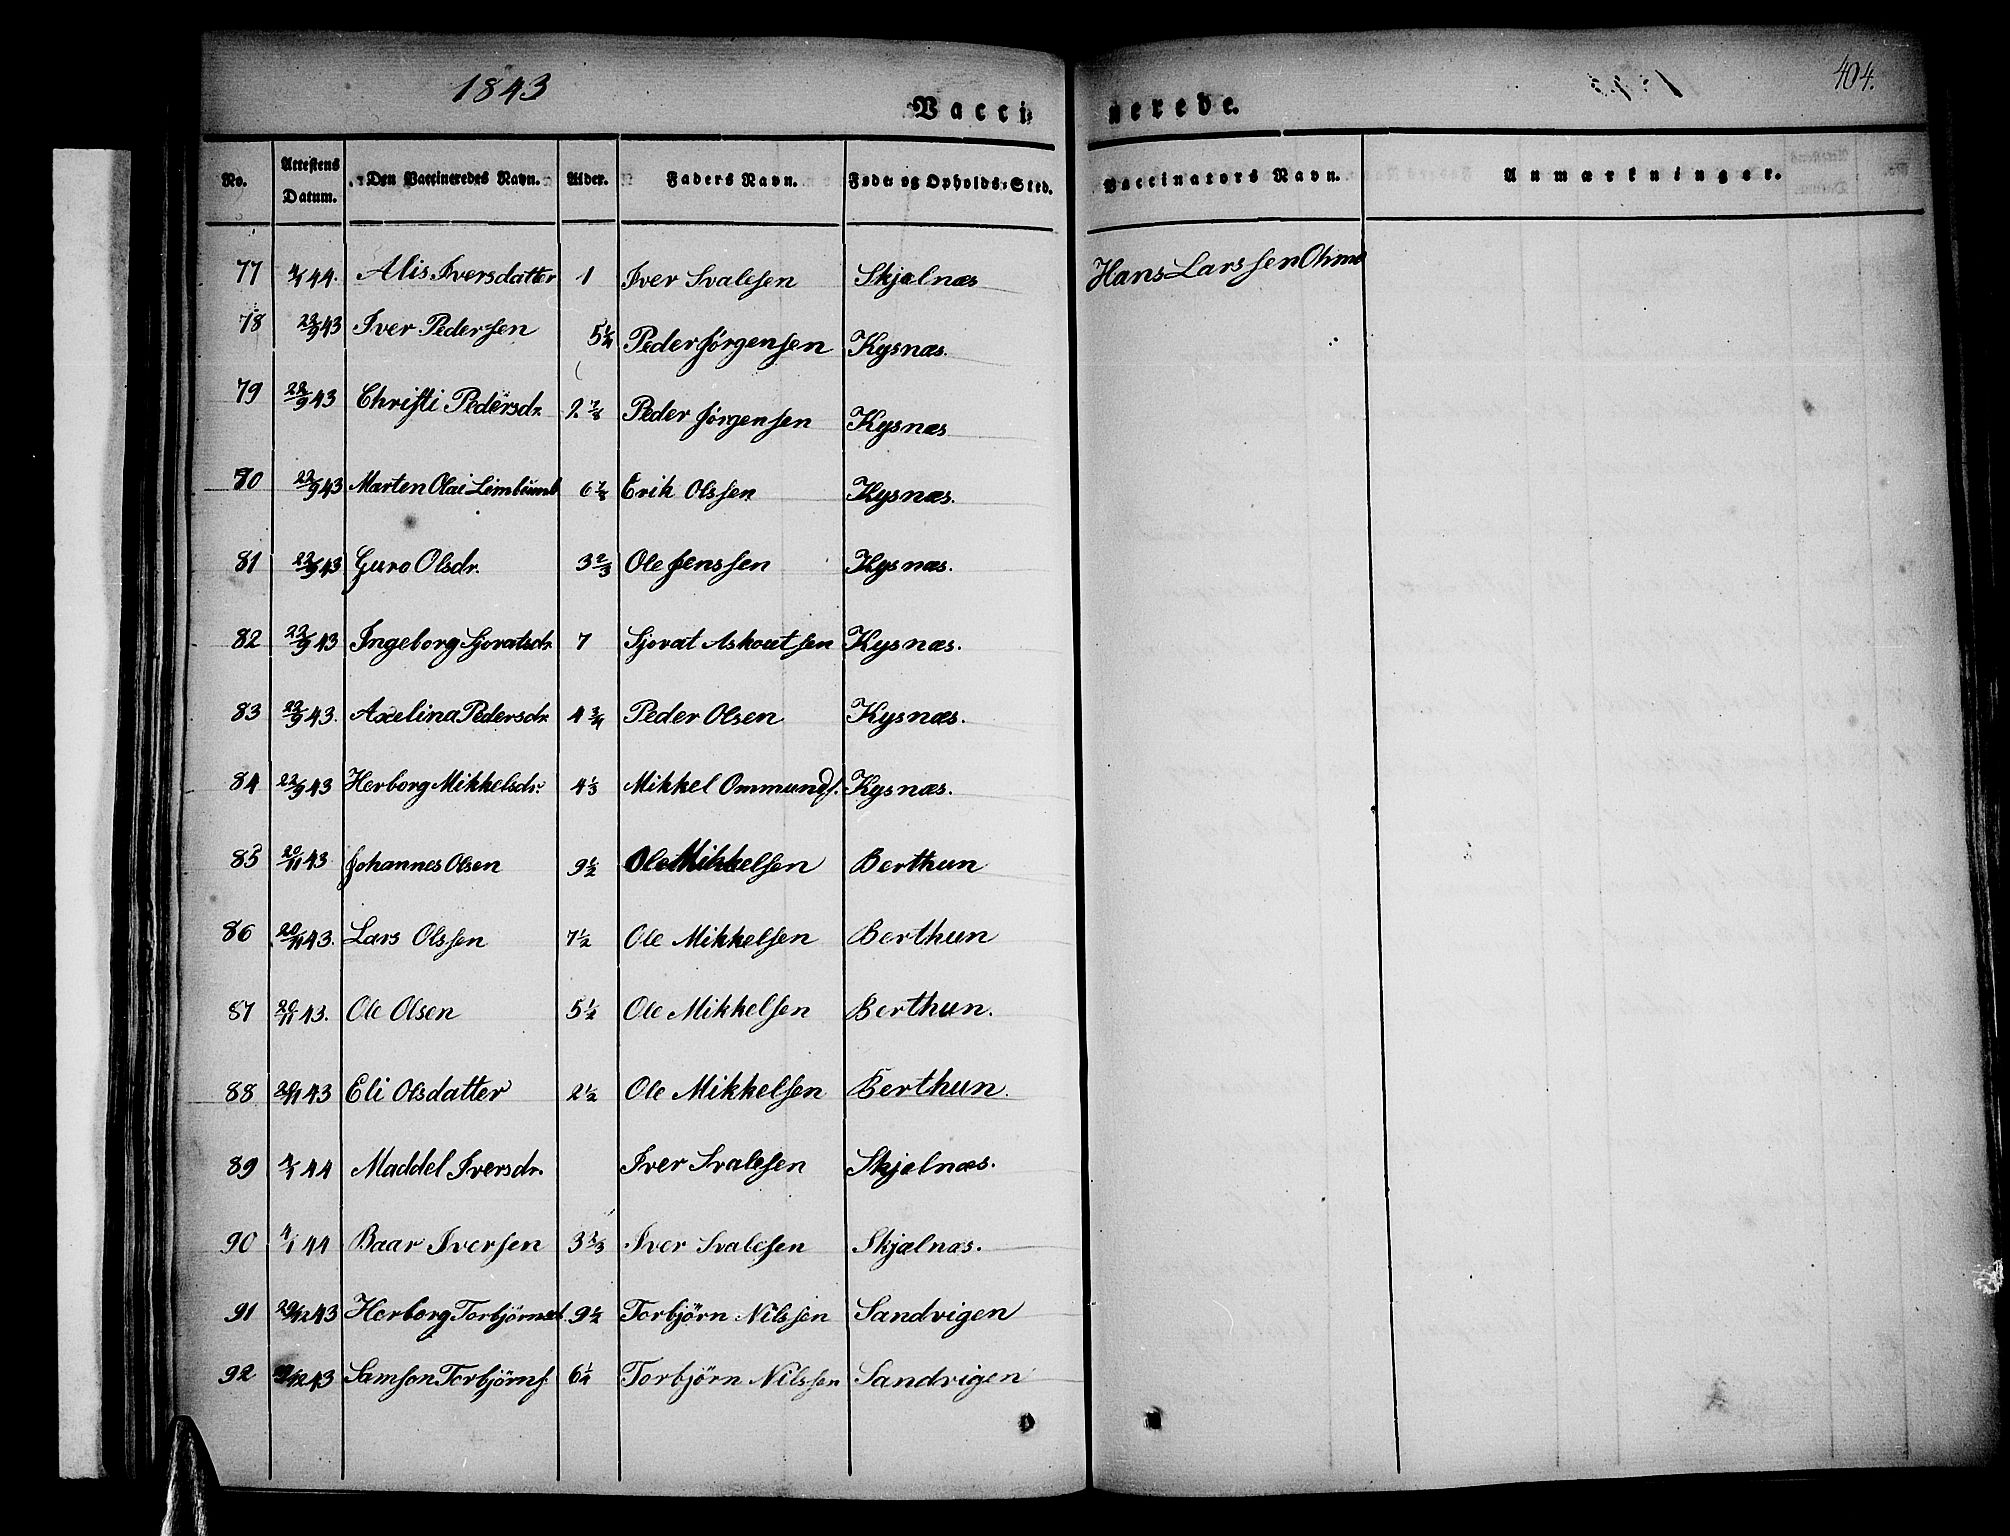 1843
Vaccinerede.
404.
No. Attestens Datum. Den Vaccineredes Navn. Alder. Faders Navn. Føde- og Opholds-Sted. Vaccinators Navn. Anmærkninger.
77 4/1 44. Alis Iversdatter 1 Iver Svalesen Skjelnæs Hans Larssen
78 22/9 43 Iver Pedersen 5 1/4 Peder Jørgensen Kysnæs.
79 22/9 43 Christi Pedersdr. 2 7/8 Peder Jørgensen Kysnæs
80 22/9 43 Marten Olai 6 7/8 Erik Olssen Kysnæs.
81 22/9 43 Guro Olsdr. 3 2/3 Ole Jenssen Kysnæs.
82 22/9 43 Ingeborg Sjovatsdr. 7 Sjovat Kysnæs.
83 22/9 43. Axelina Pedersdr. 4 3/4 Peder Olsen Kysnæs.
84 22/9 43 Herborg Mikkelsdr. 4 1/3 Mikkel Ommunds. Kysnæs.
85 20/11 43 Johannes Olsen 9 1/2 Ole Mikkelsen Berthun
86 20/11 43. Lars Olssen 7 1/2 Ole Mikkelsen Berthun
87 20/11 43. Ole Olsen 5 1/2 Ole Mikkelsen Berthun.
88 20/11 43 Eli Olsdatter 2 1/2 Ole Mikkelsen Berthun.
89 4/1 44 Maddel Iversdr. Iver Svalesen Skjelnæs.
90 4/1 44 Baar Iversen 3 2/3 Iver Svalesen Skjælnæs.
91 29/12 43 Herborg Torbjörnsd. 9 1/2 Torbjörn Nilssen Sandvigen
92 29/12 43 Samson Torbjörns. 6 1/4 Torbjörn Nilssen Sandvigen